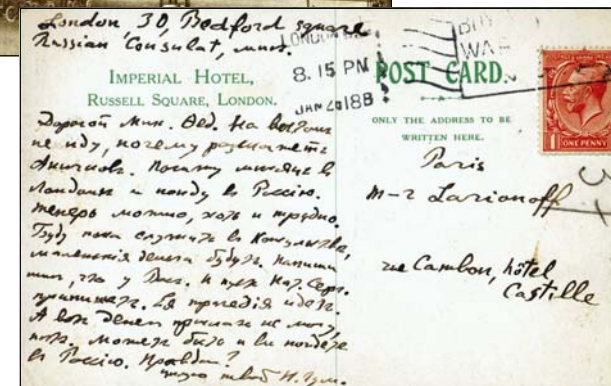 London 30, Bedford square
Russian Consulat, мнѣ.
IMPERIAL HOTEL,
RUSSELL SQUARE, LONDON.
8.15 PM
JAN 20 18 B
BUY
WAR
POST CARD.
ONLY THE ADDRESS TO BE
WRITTEN HERE.
ONE PENNY
Дорогой Мих. Ѳед. На востокъ
не иду, почему разскажетъ
Аничковъ. Поживу мѣсяцъ въ
Лондонѣ и поѣду въ Россію.
теперь можно, хоть и трудно.
Буду пока служить въ Консульствѣ,
маленькія деньги будутъ. Напиши
мнѣ, что у Васъ. И пусть Нат. Серг.
припишетъ. Ея трагедія идетъ.
А вотъ денегъ прислать не могу,
Можетъ быть и вы поѣдете
въ Россію. Правда?
твой Н. Гум.
Paris
M-r Larionoff
rue Cambon, hôtel
Castille